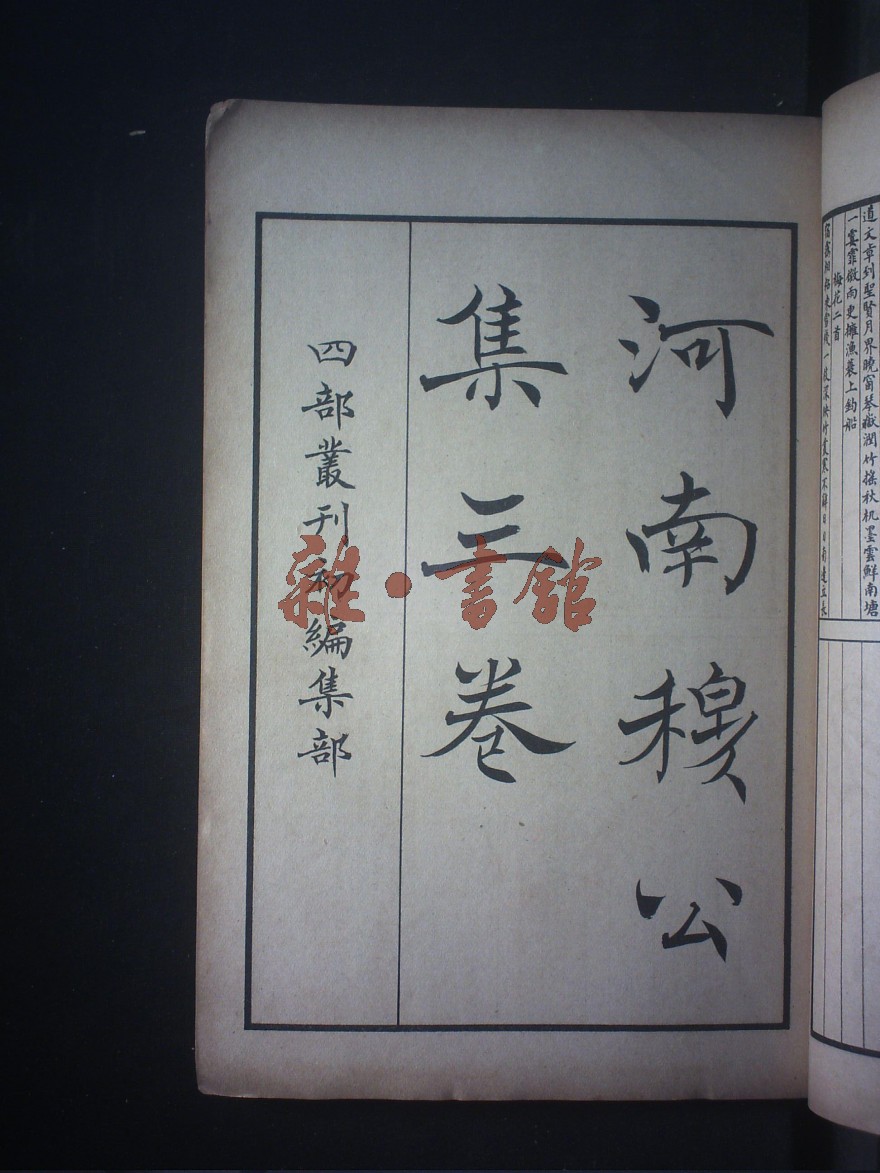 道文章列聖賢月界曉窗琴嶽潤竹搖秋机墨雲鮮南塘
一霎霏微雨更擁漁蓑上釣船
梅花二首
河南穆公
集三卷
四部叢刊初編集部
雜·書館